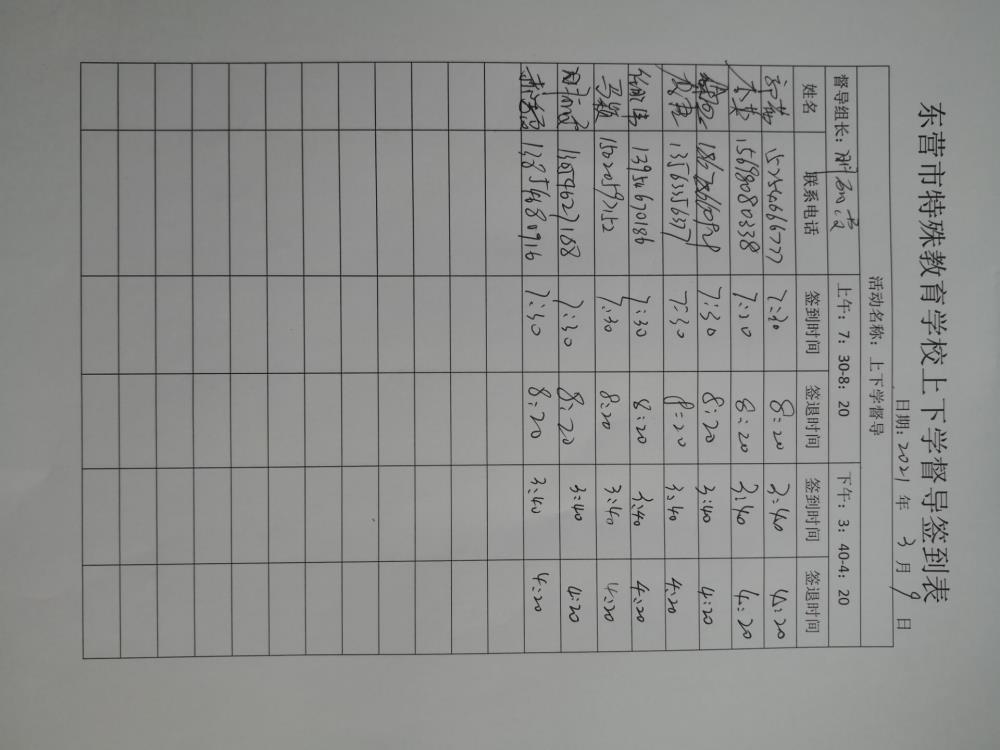 东营市特殊教育学校上下学督导签到表
日期：2021年 3月 9日
活动名称：上下学督导
督导组长： 上午：7：30-8：20 下午：3：40-4：20
姓名 联系电话 签到时间 签退时间 签到时间 签退时间
15254666777 7:30 8:20 3:40 4:20
15698080338 7:20 8:20 3:40 4:20
7:30 8:20 3:40 4:20
7:30 8:20 3:40 4:20
13954670186 7:30 8:20 3:40 4:20
马颖 15020597152 7:30 8:20 3:40 4:20
13054627188 7:30 8:20 3:40 4:20
13854680916 7:30 8:20 3:40 4:20